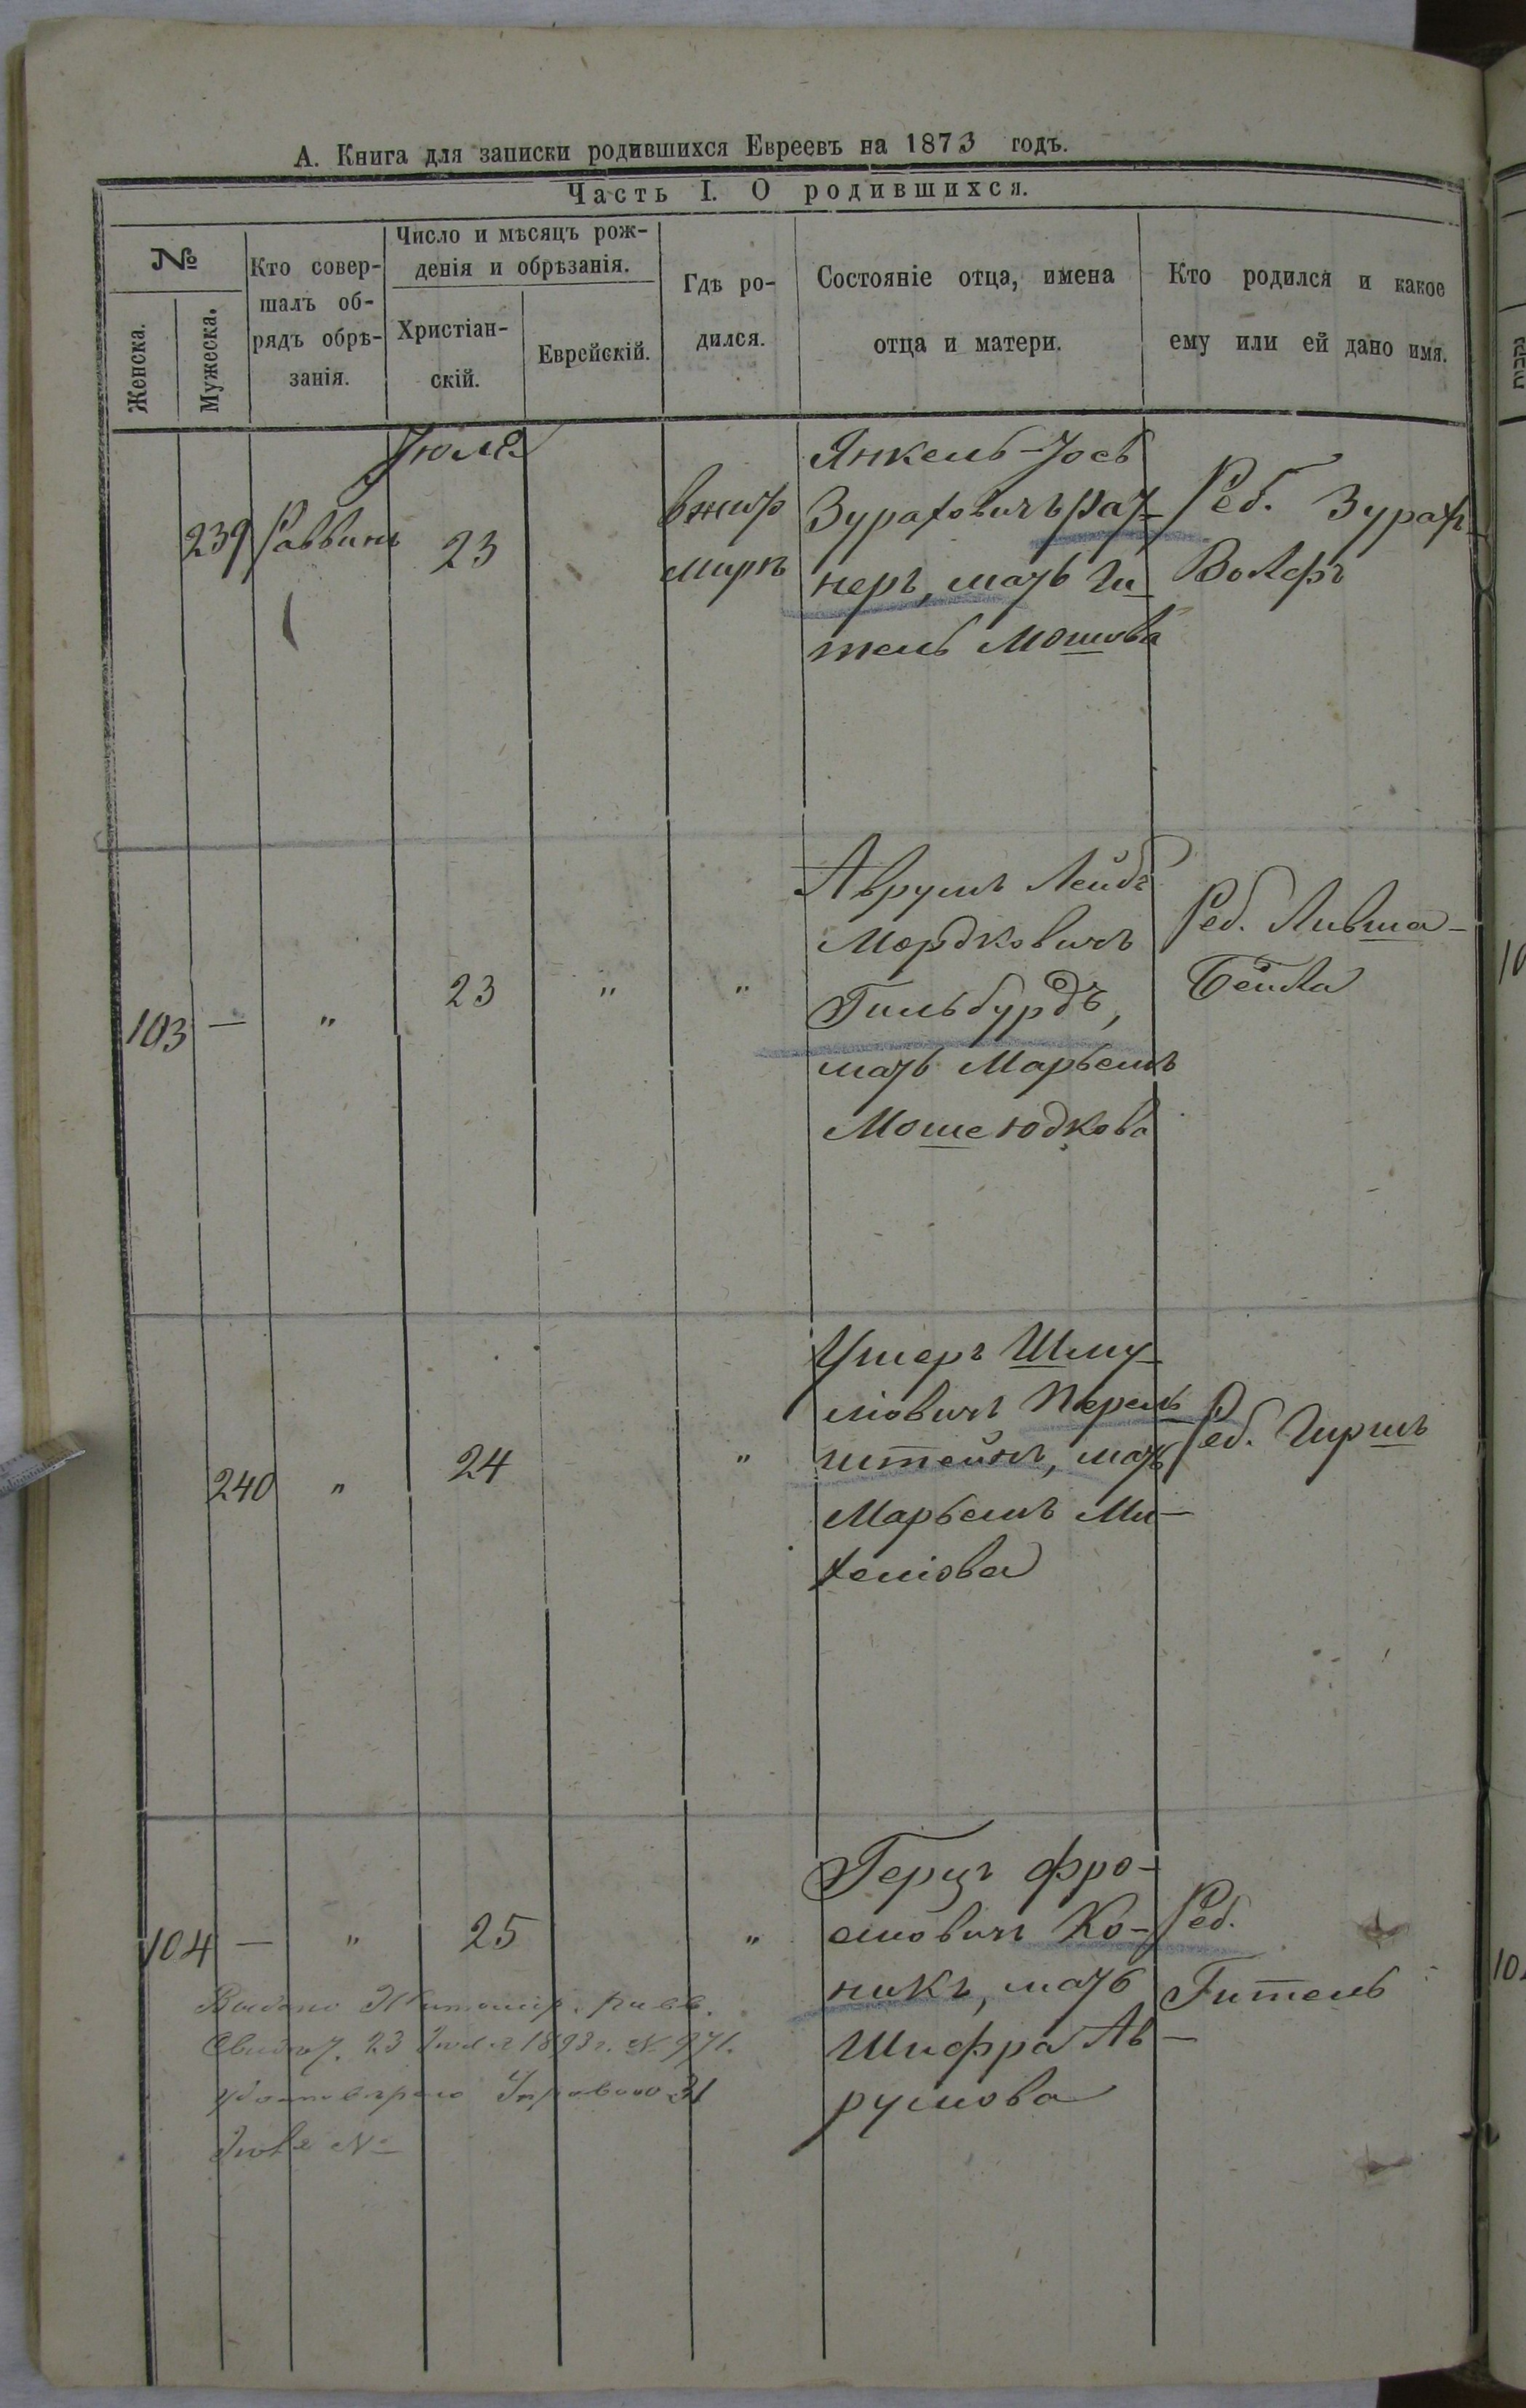 А. Книга для записки родившихся Евреевъ на 1873 годъ.
Часть I. О родившихся.
№
Женска.
Мужеска.
Кто совер-
шалъ об-
рядъ обрѣ-
занія.
Число и мѣсяцъ рож-
денія и обрѣзанія.
Христіан-
скій.
Еврейскій.
Гдѣ ро-
дился.
Состояніе отца, имена
отца и матери.
Кто родился и какое
ему или ей дано имя.
Іюля
239 Раввинъ 23
в жито
мирѣ
Янкель-Іосъ
Зураховичъ Рат-
неръ, мать Ги-
тель Мошкова
Реб. Зурахъ-
Вольфъ
103 — " 23 " "
Аврумъ Лейбъ
Мордковичъ
Гильбурдъ,
мать Марьемъ
Мошеюдкова
Реб. Ливша-
Бейла
240 " 24 "
Ушеръ Шму-
ліовичъ Перель
штейнъ, мать
Марьемъ Ми-
хеліова
Реб. Гиршъ
104 — " 25 "
Герцъ Фро-
имовичъ Ко-
никъ, мать
Шифра Ав-
румова
Реб.
Гитель
Выдано Житомір. равв.
Свидѣт. 23 Іюля 1893 г. № 971.
Управою 31
Іюля №